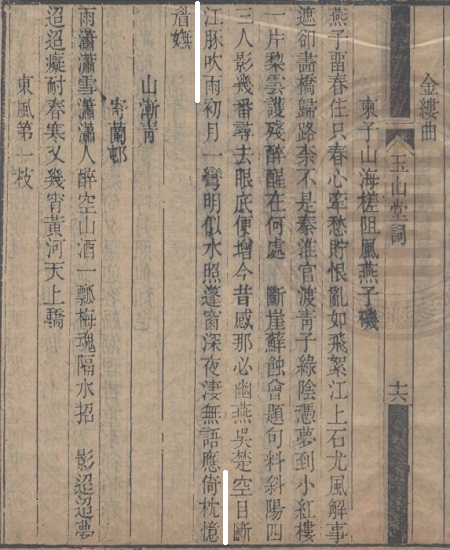 金縷曲
柬子山海槎阻風燕子磯
玉山堂詞
十六
燕子畱春住只春心牽愁貯恨亂如飛絮江上石尤風解事
遮卻畵橋歸路柰不是秦淮官渡青子綠陰憑夢到小紅樓
一片棃雲護殘醉醒在何處 斷崖蘚蝕曾題句料斜陽四
三人影幾番尋去眼底便增今昔感那必幽燕吳楚空目斷
江豚吹雨初月一彎明似水照蓬窗深夜淒無語應倚枕憶
眉嫵
山漸青
寄蘭邨
雨瀟瀟雪瀟瀟人醉空山酒一瓢梅魂隔水招 影迢迢夢
迢迢癡耐春寒又幾宵黃河天上驕
東風第一枝